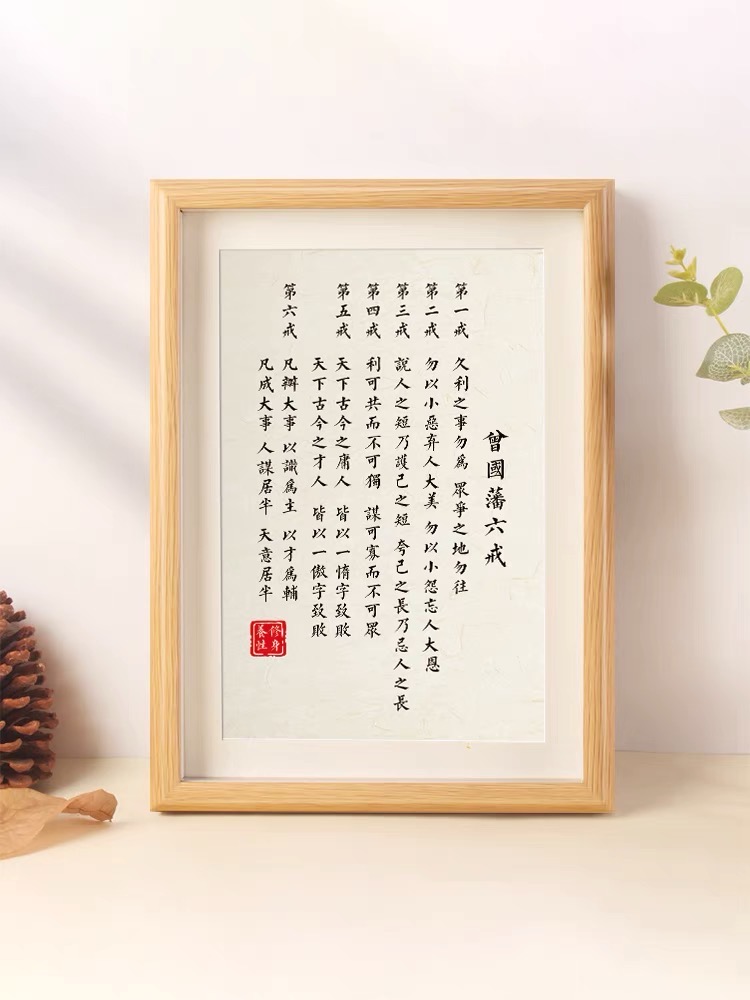 曾國藩六戒
第一戒 久利之事勿為 眾爭之地勿往
第二戒 勿以小惡弃人大美 勿以小怨忘人大恩
第三戒 說人之短乃護己之短 夸己之長乃忌人之長
第四戒 利可共而不可獨 謀可寡而不可眾
第五戒 天下古今之庸人 皆以一惰字致敗
天下古今之才人 皆以一傲字致敗
第六戒 凡辦大事 以識為主 以才為輔
凡成大事 人謀居半 天意居半
修身
養性